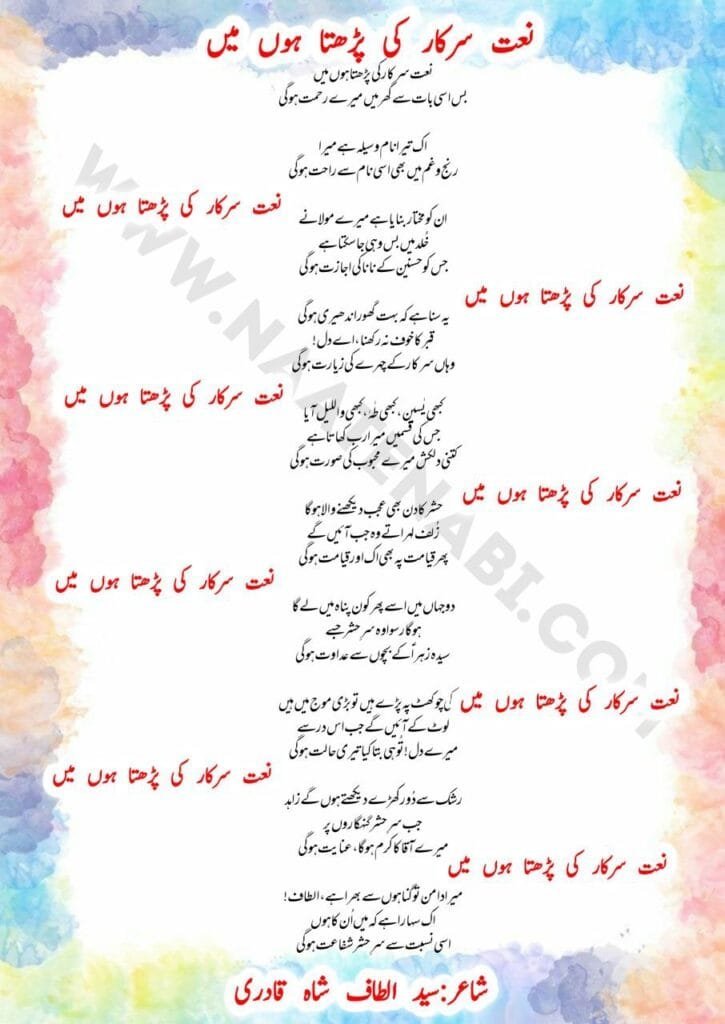 نعت سرکار کی پڑھتا ہوں میں
نعت سرکار کی پڑھتا ہوں میں
بس اسی بات سے گھر میں میرے رحمت ہوگی
اک تیرا نام وسیلہ ہے میرا
رنج و غم میں بھی اسی نام سے راحت ہوگی
نعت سرکار کی پڑھتا ہوں میں
ان کو مختار بنایا ہے میرے مولا نے
خُلد میں بس وہی جا سکتا ہے
جس کو حسنین کے نانا کی اجازت ہوگی
نعت سرکار کی پڑھتا ہوں میں
یہ سنا ہے کہ بہت گھور اندھیری ہوگی
قبر کا خوف نہ رکھنا، اے دل!
وہاں سرکار کے چہرے کی زیارت ہوگی
نعت سرکار کی پڑھتا ہوں میں
کبھی یٰسین، کبھی طٰہٰ، کبھی واللیل آیا
جس کی قسمیں میرا رب کھاتا ہے
کتنی دلکش میرے محبوب کی صورت ہوگی
نعت سرکار کی پڑھتا ہوں میں
حشر کا دن بھی عجب دیکھنے والا ہوگا
زُلف لہراتے وہ جب آئیں گے
پھر قیامت پہ بھی اک اور قیامت ہوگی
نعت سرکار کی پڑھتا ہوں میں
دو جہاں میں اسے پھر کون پناہ میں لے گا
ہوگا رسوا وہ سرِ حشر جسے
سیدہ زہراؑ کے بچوں سے عداوت ہوگی
نعت سرکار کی پڑھتا ہوں میں
کی چوکھٹ پہ پڑے ہیں تو بڑی موج میں ہیں
لوٹ کے آئیں گے جب اس در سے
میرے دل! تُو ہی بتا کیا تیری حالت ہوگی
نعت سرکار کی پڑھتا ہوں میں
رشک سے دُور کھڑے دیکھتے ہوں گے زاہد
جب سرِ حشر گنہگاروں پر
میرے آقا کا کرم ہوگا، عنایت ہوگی
نعت سرکار کی پڑھتا ہوں میں
میرا دامن تو گناہوں سے بھرا ہے، الطاف!
اک سہارا ہے کہ میں اُن کا ہوں
اسی نسبت سے سرِ حشر شفاعت ہوگی
شاعر:سید الطاف شاہ قادری
WWW.NAATENABI.COM